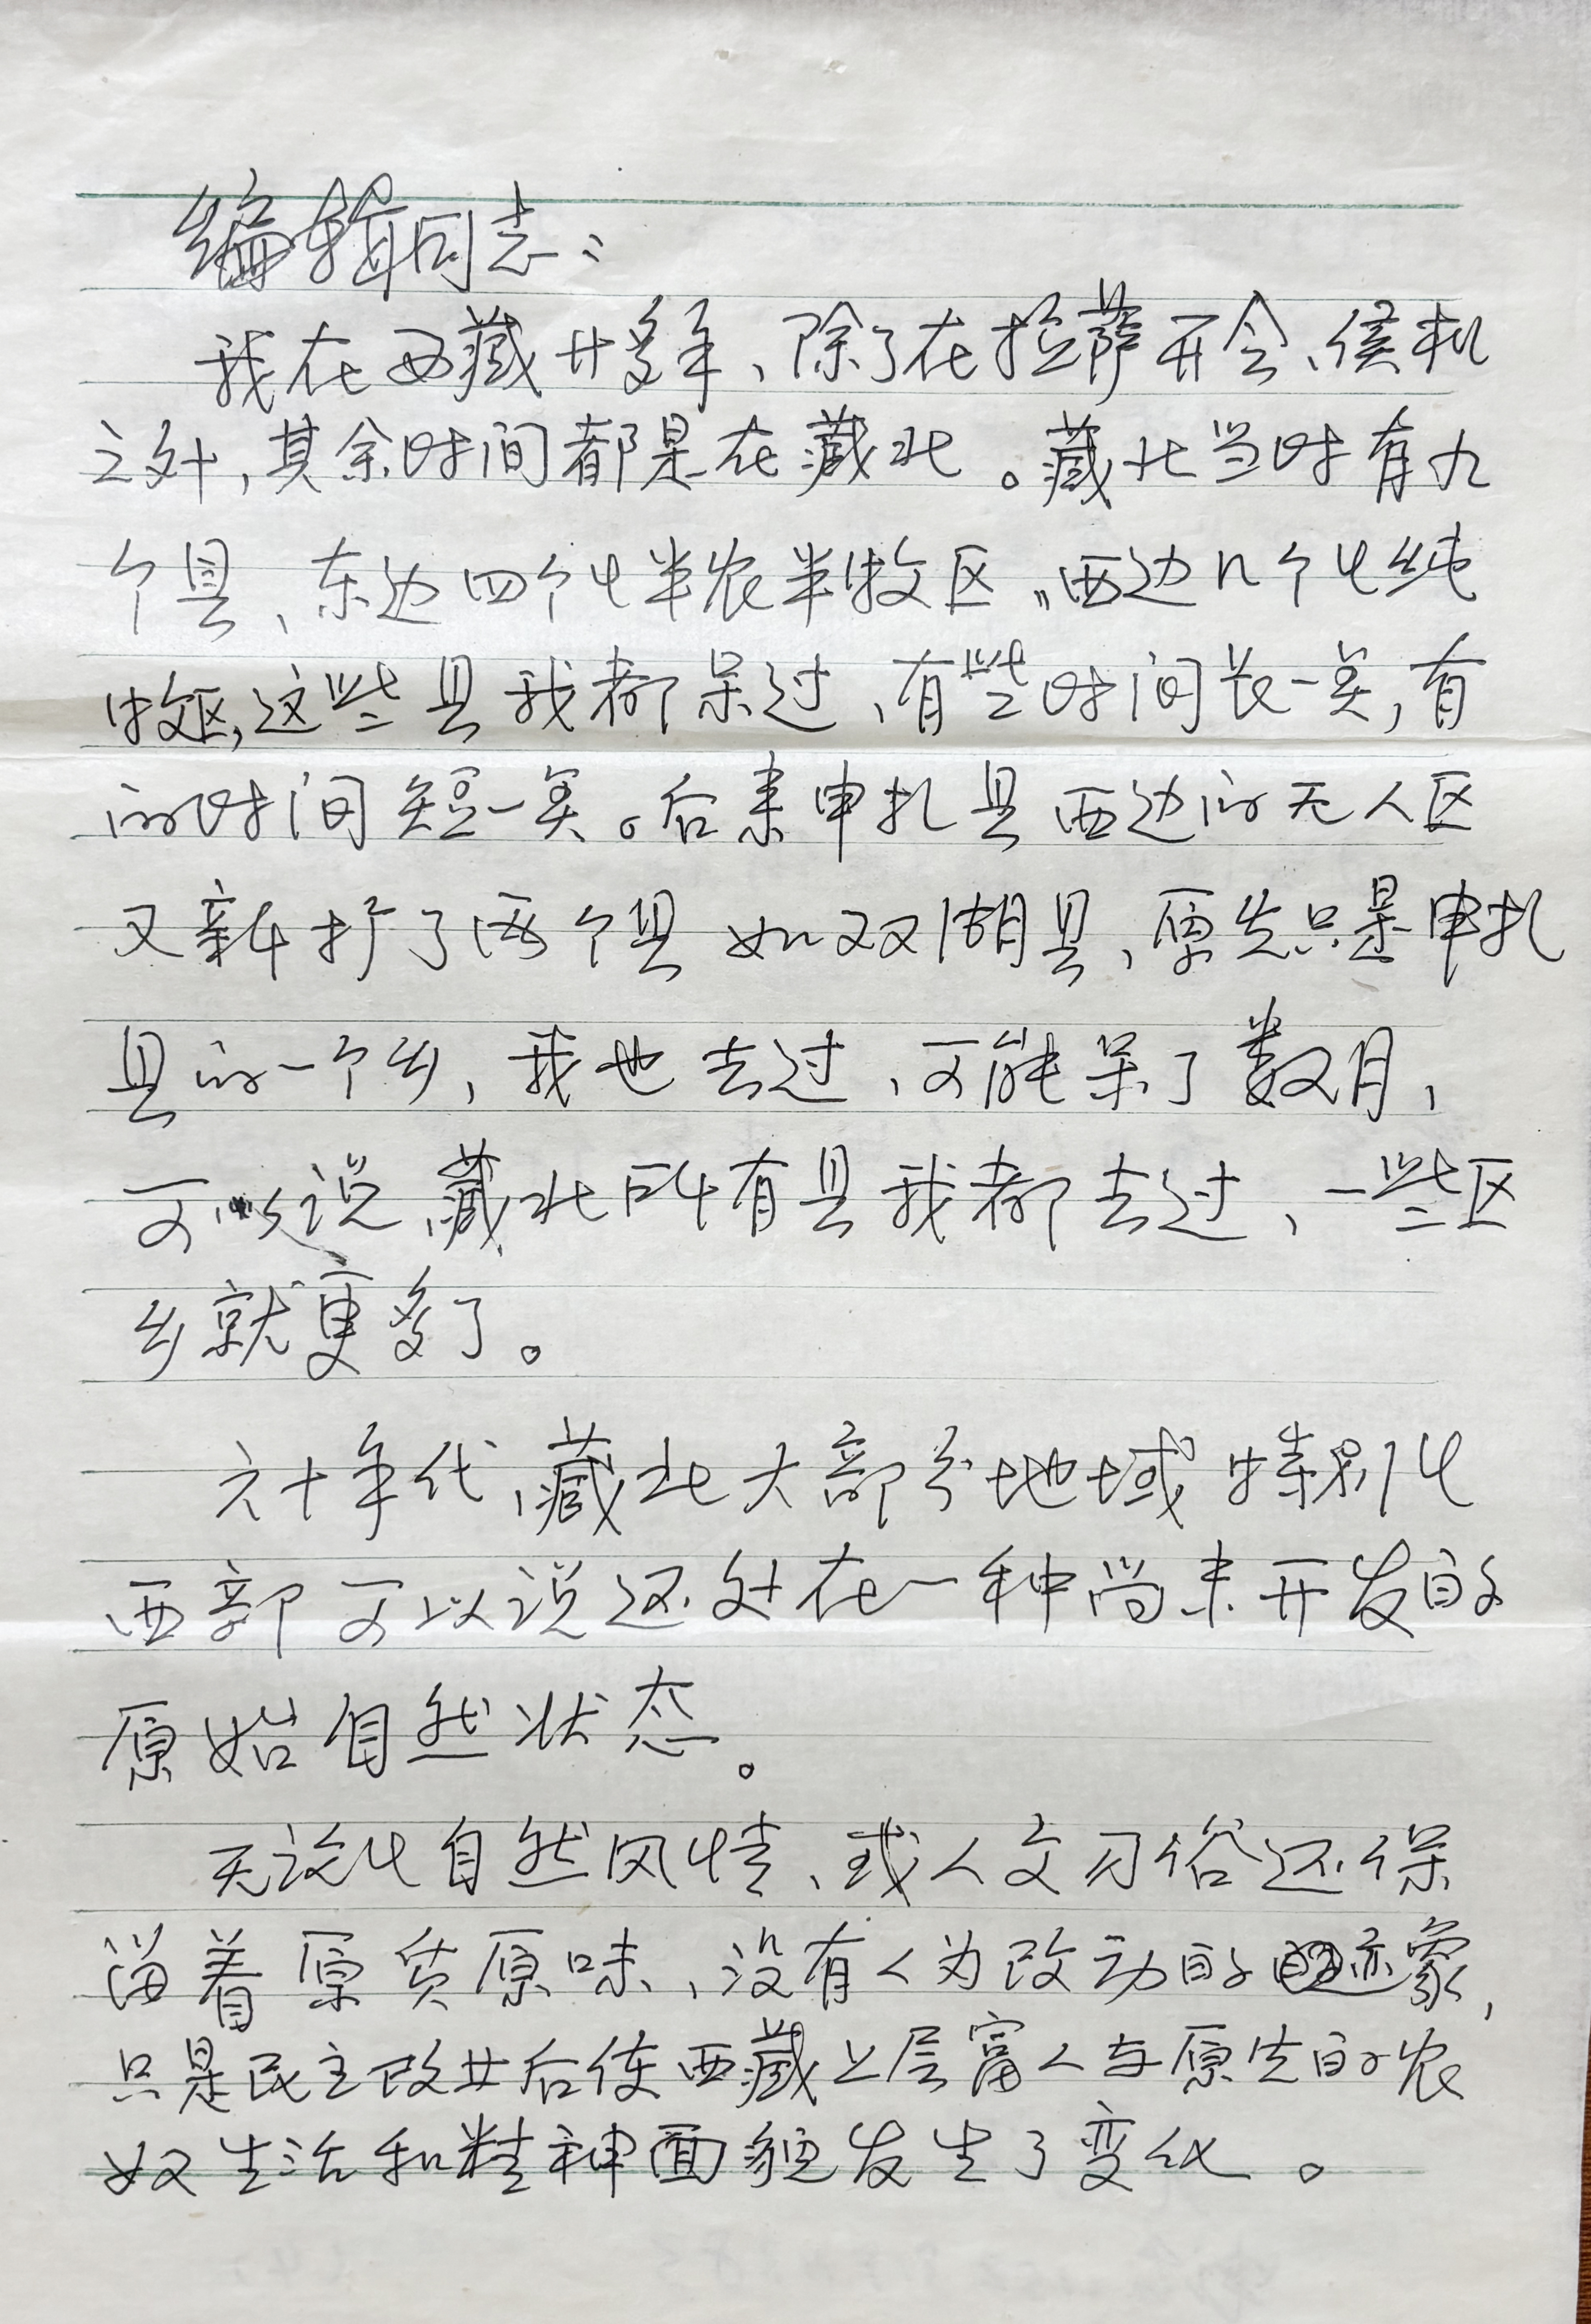 编辑同志：
我在西藏廿多年、除了在拉萨开会、候机
之外，其余时间都是在藏北。藏北当时有九
个县、东边四个是半农半牧区，西边几个是纯
牧区，这些县我都呆过、有些时间长一点，有
的时间短一点。后来申扎县西边的无人区
又新扩了两个县 如双湖县、原先只是申扎
县的一个乡，我也去过、可能呆了数月，
可以说、藏北所有县我都去过、一些区
乡就更多了。
六十年代、藏北大部分地域 特别是
西部 可以说还处在一种尚未开发的
原始自然状态。
无论是自然风情、或人文习俗还保
留着原质原味、没有人为改动的迹象，
只是民主改革后使西藏上层富人与原先的农
奴生活和精神面貌发生了变化。